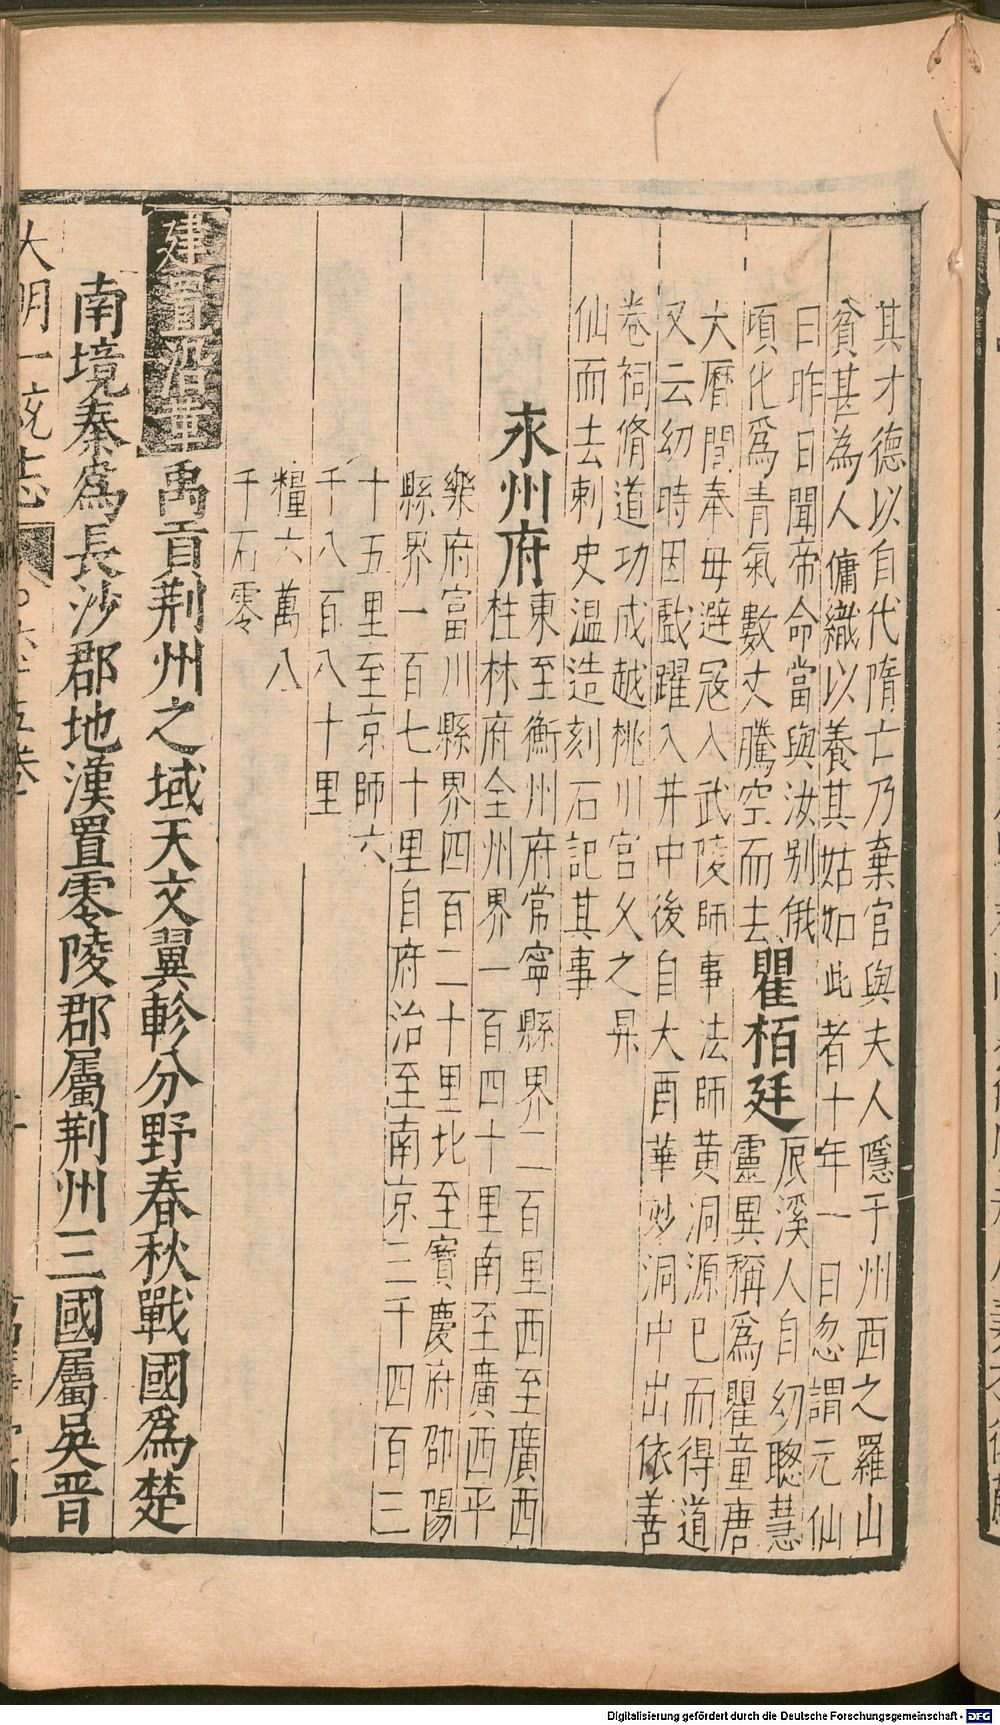 其才德以自代隋亡乃棄官與夫人隱于州西之羅山
貧甚為人傭織以養其姑如此者十年一日忽謂元仙
曰昨日聞帝命當與汝别俄
頃化爲青氣數丈騰空而去
瞿栢廷
辰溪人自幼聰慧
靈異稱爲瞿童唐
大曆間奉母避寇入武陵師事法師黄洞源已而得道
又云幼時因戱躍入井中後自大酉華妙洞中出依善
卷祠脩道功成越桃川宫久之昇
仙而去刺史温造刻石記其事
永州府
東至衡州府常寧縣界二百里西至廣西
桂林府全州界一百四十里南至廣西平
樂府富川縣界四百二十里北至寶慶府邵陽
縣界一百七十里自府治至南京三千四百三
十五里至京師六
千八百八十里
糧六萬八
千石零
建置沿革
禹貢荆州之域天文翼軫分野春秋戰國爲楚
南境秦爲長沙郡地漢置零陵郡屬荆州三國屬吳晋
大明一統志
Digitalisierung gefördert durch die Deutsche Forschungsgemeinschaft - DFG